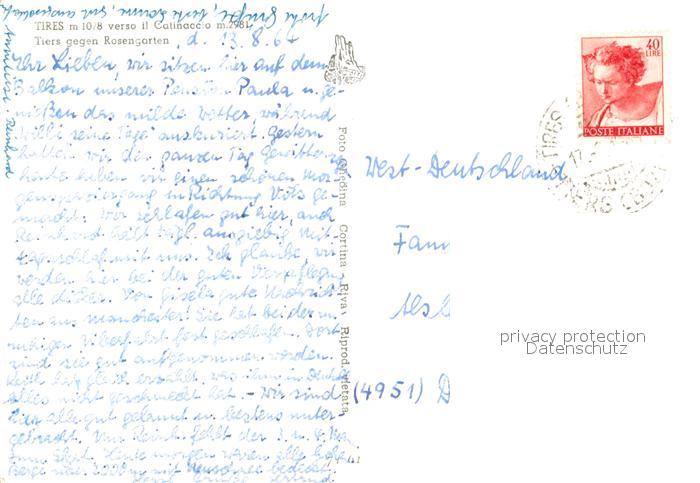 TIRES m 10/8 verso il Catinaccio m.2981
Tiers gegen Rosengarten
d. 13.8.67
Ihr Lieben, wir sitzen hier auf dem
Balkon unserer Pension Paula u. ge-
nießen das milde Wetter, während
Willi seine Tage auskuriert. Gestern
hatten wir den ganzen Tag Gewitter,
heute haben wir einen schönen Mor-
genspaziergang in Richtung Völs ge-
macht. Wir schlafen gut hier, auch
Reinhard hält tägl. ausgiebig Mit-
tagsschlaf mit uns. Ich glaube, wir
werden hier bei der guten Verpflegung
alle dicker. Von Gisela gute Nachrich-
ten aus Manchester! Sie hat bei der
ruhigen Überfahrt fest geschlafen. Dort
sind sie gut aufgenommen worden.
gleich erzählt, was ihm in
alles nicht geschmeckt hat. - Wir sind
hier alle gut gelaunt u. bestens unter-
gebracht. Nur Reinh. fehlt der 3. u. 4. Mann
zum Skat. Heute morgen waren alle hohen
Berge über 2000 m mit Neuschnee bedeckt.
Grüße
Annliese. Reinhard
Foto Ghedina Cortina Riva Riprod. vietata
40
LIRE
POSTE ITALIANE
TIRES
TIERS
West-Deutschland
Fam
(4951) D
privacy protection
Datenschutz